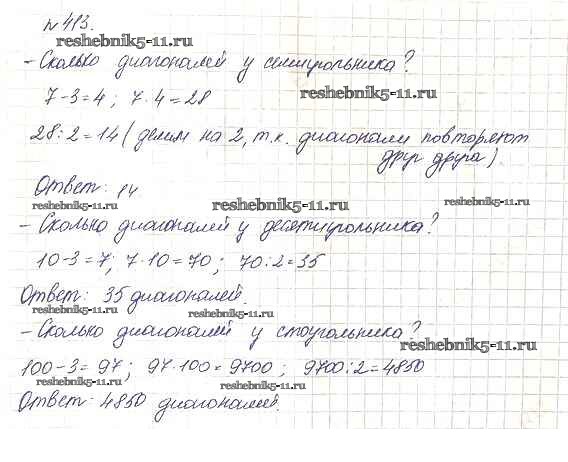 № 413.
reshebnik5-11.ru
- Сколько диагоналей у семиугольника?
7-3=4; 7·4=28
reshebnik5-11.ru
28:2=14 (делим на 2, т.к. диагонали повторяют
друг друга).
Ответ: 14
reshebnik5-11.ru reshebnik5-11.ru reshebnik5-11.ru
- Сколько диагоналей у десятиугольника?
10-3=7; 7·10=70; 70:2=35
Ответ: 35 диагоналей.
reshebnik5-11.ru reshebnik5-11.ru
- Сколько диагоналей у стоугольника?
reshebnik5-11.ru
100-3=97; 97·100=9700; 9700:2=4850
reshebnik5-11.ru reshebnik5-11.ru
Ответ: 4850 диагоналей.